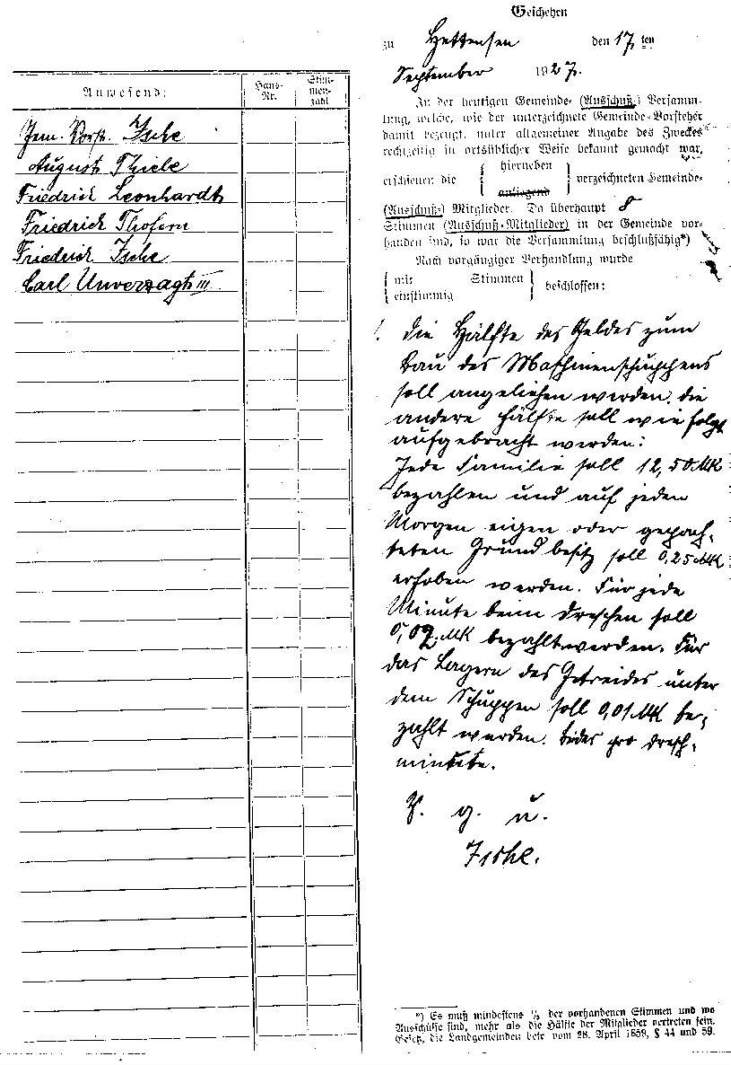 Anwesend:
Haus-
Nr.
Stim-
men-
zahl
Gem. Vorst. Ische
August Thiele
Friedrich Leonhardt
Friedrich Thofern
Friedrich Ische
Carl Unverzagt III
Geschehen
zu Hettensen den 17. ten
September 1927.
In der heutigen Gemeinde- (Ausschuß-) Versamm-
lung, welche, wie der unterzeichnete Gemeinde-Vorsteher
damit bezeugt, unter allgemeiner Angabe des Zweckes
rechtzeitig in ortsüblicher Weise bekannt gemacht war,
hierneben
erschienen die verzeichneten Gemeinde-
anliegend
(Ausschuß-) Mitglieder. Da überhaupt 8
Stimmen (Ausschuß-Mitglieder) in der Gemeinde vor-
handen sind, so war die Versammlung beschlußfähig*)
Nach vorgängiger Verhandlung wurde
mit Stimmen
beschlossen:
einstimmig
1. Die Hälfte des Geldes zum
Bau des Maschinenschuppens
soll angeliehen werden, die
andere Hälfte soll wie folgt
aufgebracht werden:
Jede Familie soll 12,50 MK
bezahlen und auf jeden
Morgen eigen oder gepach-
teten Grundbesitz soll 0,25 MK
erhoben werden. Für jede
Minute beim Dreschen soll
0,02 MK bezahlt werden. Für
das Lagern des Getreides unter
dem Schuppen soll 0,01 MK be-
zahlt werden. Beides pro Dresch-
minute.
V. g. u.
Ische.
*) Es muß mindestens 1/3 der vorhandenen Stimmen und wo
Ausschüsse sind, mehr als die Hälfte der Mitglieder vertreten sein.
Gesetz, die Landgemeinden betr. vom 28. April 1859, § 44 und 59.